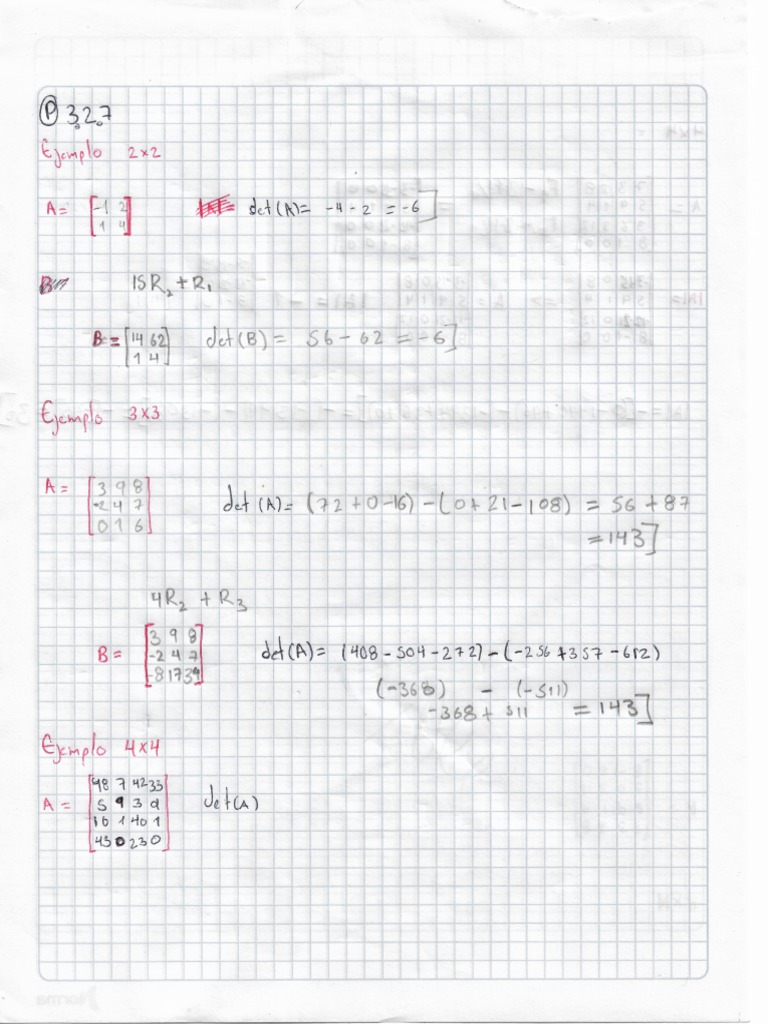 Ⓟ 3.2.7
Ejemplo 2×2
A = [-1 2
1 4] det(A) = -4 - 2 = -6]
15R₂ + R₁
B = [14 62
1 4] det(B) = 56 - 62 = -6]
Ejemplo 3×3
A = [3 9 8
-2 4 7
0 1 6] det(A) = (72 + 0 - 16) - (0 + 21 - 108) = 56 + 87
= 143]
4R₂ + R₃
B = [3 9 8
-2 4 7
-8 17 34] det(A) = (408 - 504 - 272) - (-256 + 357 - 612)
(-368) - (-511)
-368 + 511 = 143]
Ejemplo 4×4
A = [98 7 42 33
5 9 3 9
10 1 40 1
43 0 23 0] det(A)